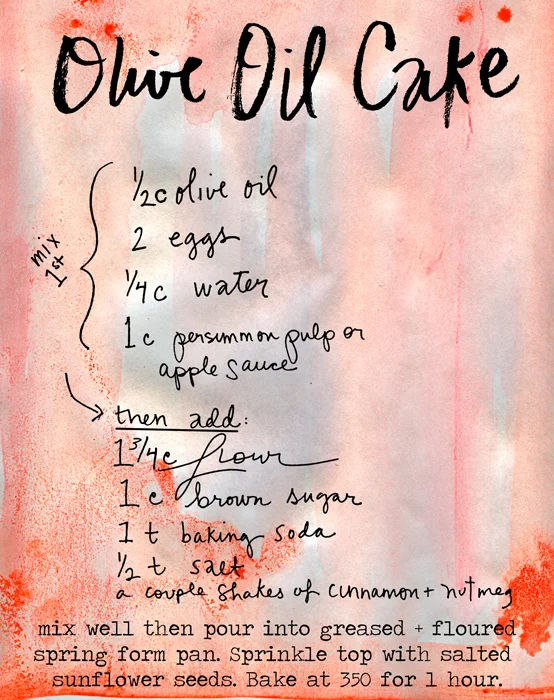 Olive Oil Cake
1/2c olive oil
2 eggs
1/4c water
mix
1st
1c persimmon pulp or
apple sauce
then add:
1 3/4c flour
1 c brown sugar
1 t baking soda
1/2 t salt
a couple shakes of cinnamon + nutmeg
mix well then pour into greased + floured
spring form pan. Sprinkle top with salted
sunflower seeds. Bake at 350 for 1 hour.